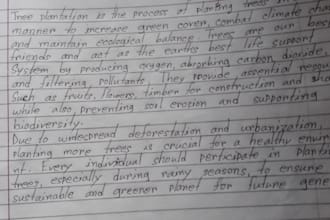 Tree plantation is the process of planting trees in
manner to increase green cover, combat climate cha
and maintain ecological balance. Trees are our best
friends and act as the earth's best life support
System by producing oxygen, absorbing carbon dioxide,
and filtering pollutants. They provide essential resour
Such as fruits, flowers, timber for construction and
while also preventing soil erosion and supporting
biodiversity.
Due to widespread deforestation and urbanization,
planting more trees is crucial for a healthy enviro
nt. Every individual should perticipate in planti
trees, especially during rainy seasons, to ensure
sustainable and greener planet for future gene